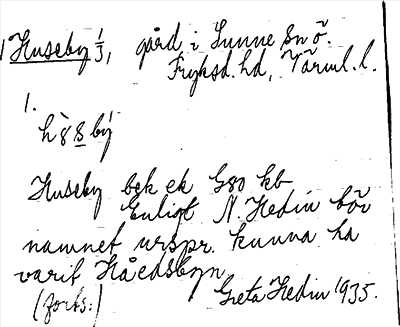 Huseby 1/3, gård i Sunne sn ö.
Fryksd. hd, Värml. l.
1.
Huseby bek ek G80 kb
Enligt N. Hedin bör
namnet urspr. kunna ha
varit Håedsbyn
(forts.) Greta Hedin 1935.